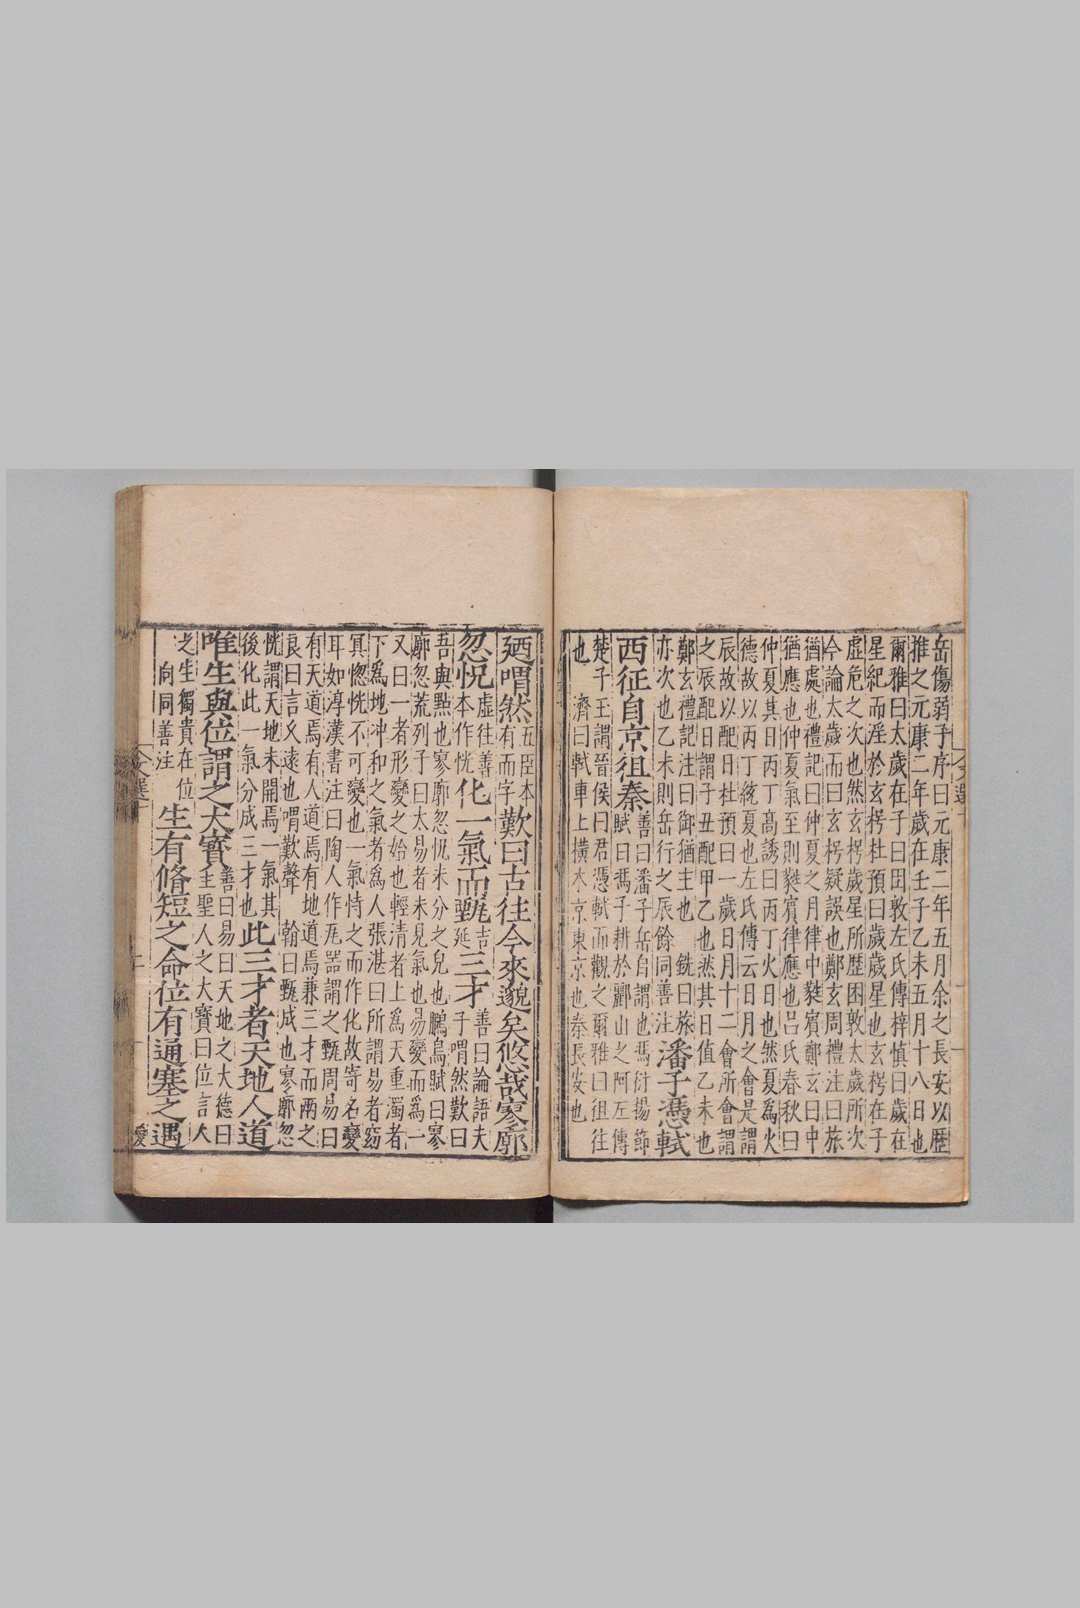 岳傷弱子序曰元康二年五月余之長安以歷
推之元康二年歲在壬子乙未五月十八日也
爾雅曰太歲在子曰困敦左氏傳梓慎曰歲在
星紀而淫於玄枵杜預曰歲歲星也玄枵在子
虛危之次也然玄枵歲星所歷困敦太歲所次
今論太歲而曰玄枵疑誤也鄭玄周禮注曰旅
猶處也禮記曰仲夏之月律中蕤賓鄭玄曰中
猶應也仲夏氣至則蕤賓律應也呂氏春秋曰
仲夏其日丙丁高誘曰丙丁火日也然夏爲火
德故以丙丁統夏也左氏傳云日月之會是謂
辰故以配日杜預曰一歲日月十二會所會謂
之辰配日謂子丑配甲乙也然其日值乙未也
鄭玄禮記注曰御猶主也 銑曰旅
亦次也乙未則岳行之辰餘同善注潘子憑軾
西征自京徂秦善曰潘子岳自謂也馮衍揚節
賦曰馮子耕於酈山之阿左傳
楚子玉謂晉侯曰君憑軾而觀之爾雅曰徂往
也 濟曰軾車上橫木京東京也秦長安也
廼喟然五臣本
有而字歎曰古往今來邈矣悠哉寥廓
忽怳虛往善
本作恍化一氣而甄吉
延三才善曰論語夫
子喟然歎曰
吾與點也寥廓忽怳未分之皃也鵩鳥賦曰寥
廓忽荒列子曰太易者未見氣也易變而爲一
又曰一者形變之始也輕清者上爲天重濁者
下爲地冲和之氣者爲人張湛曰所謂易者窈
冥惚恍不可變也一氣恃之而作化故寄名變
耳如淳漢書注曰陶人作瓦器謂之甄周易曰
有天道焉有人道焉有地道焉兼三才而兩之
良曰言乆遠也喟歎聲 翰曰甄成也寥廓忽
恍謂天地未開焉一氣其
後化此一氣分成三才也此三才者天地人道
唯生與位謂之大寶善曰易曰天地之大德曰
生聖人之大寶曰位言人
之生獨貴在位
向同善注生有脩短之命位有通塞之遇